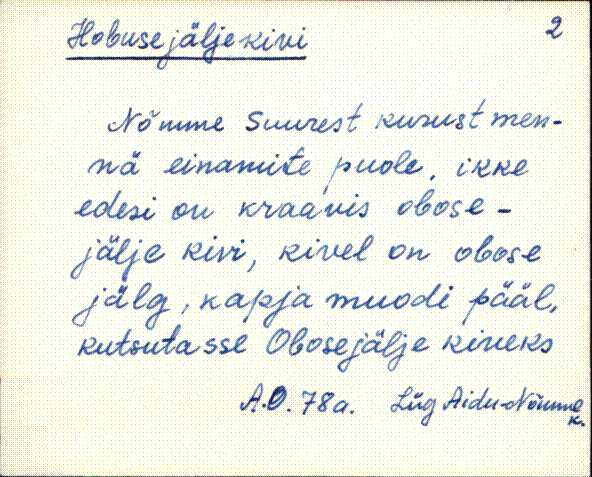 Hobusejäljekivi
2
Nõmme Suurest kurust men-
nä einamite puole, ikke
edesi on kraavis obose-
jälje kivi, kivel on obose
jälg, kapja muodi pääl,
kutsutasse Obosejälje kiveks
A.O. 78a. Lüg Aidu-Nõmme
k.